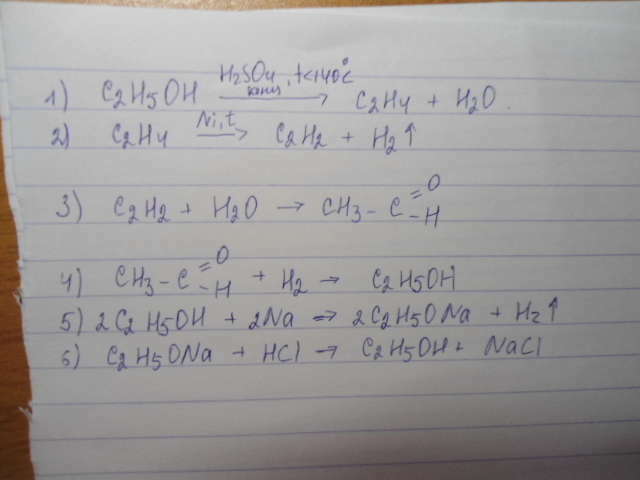 1) C2H5OH H2SO4 конц, t<140°C → C2H4 + H2O.
2) C2H4 Ni,t → C2H2 + H2↑
3) C2H2 + H2O → CH3-C=O-H
4) CH3-C=O-H + H2 → C2H5OH
5) 2C2H5OH + 2Na ⇒ 2C2H5ONa + H2↑
6) C2H5ONa + HCl → C2H5OH + NaCl